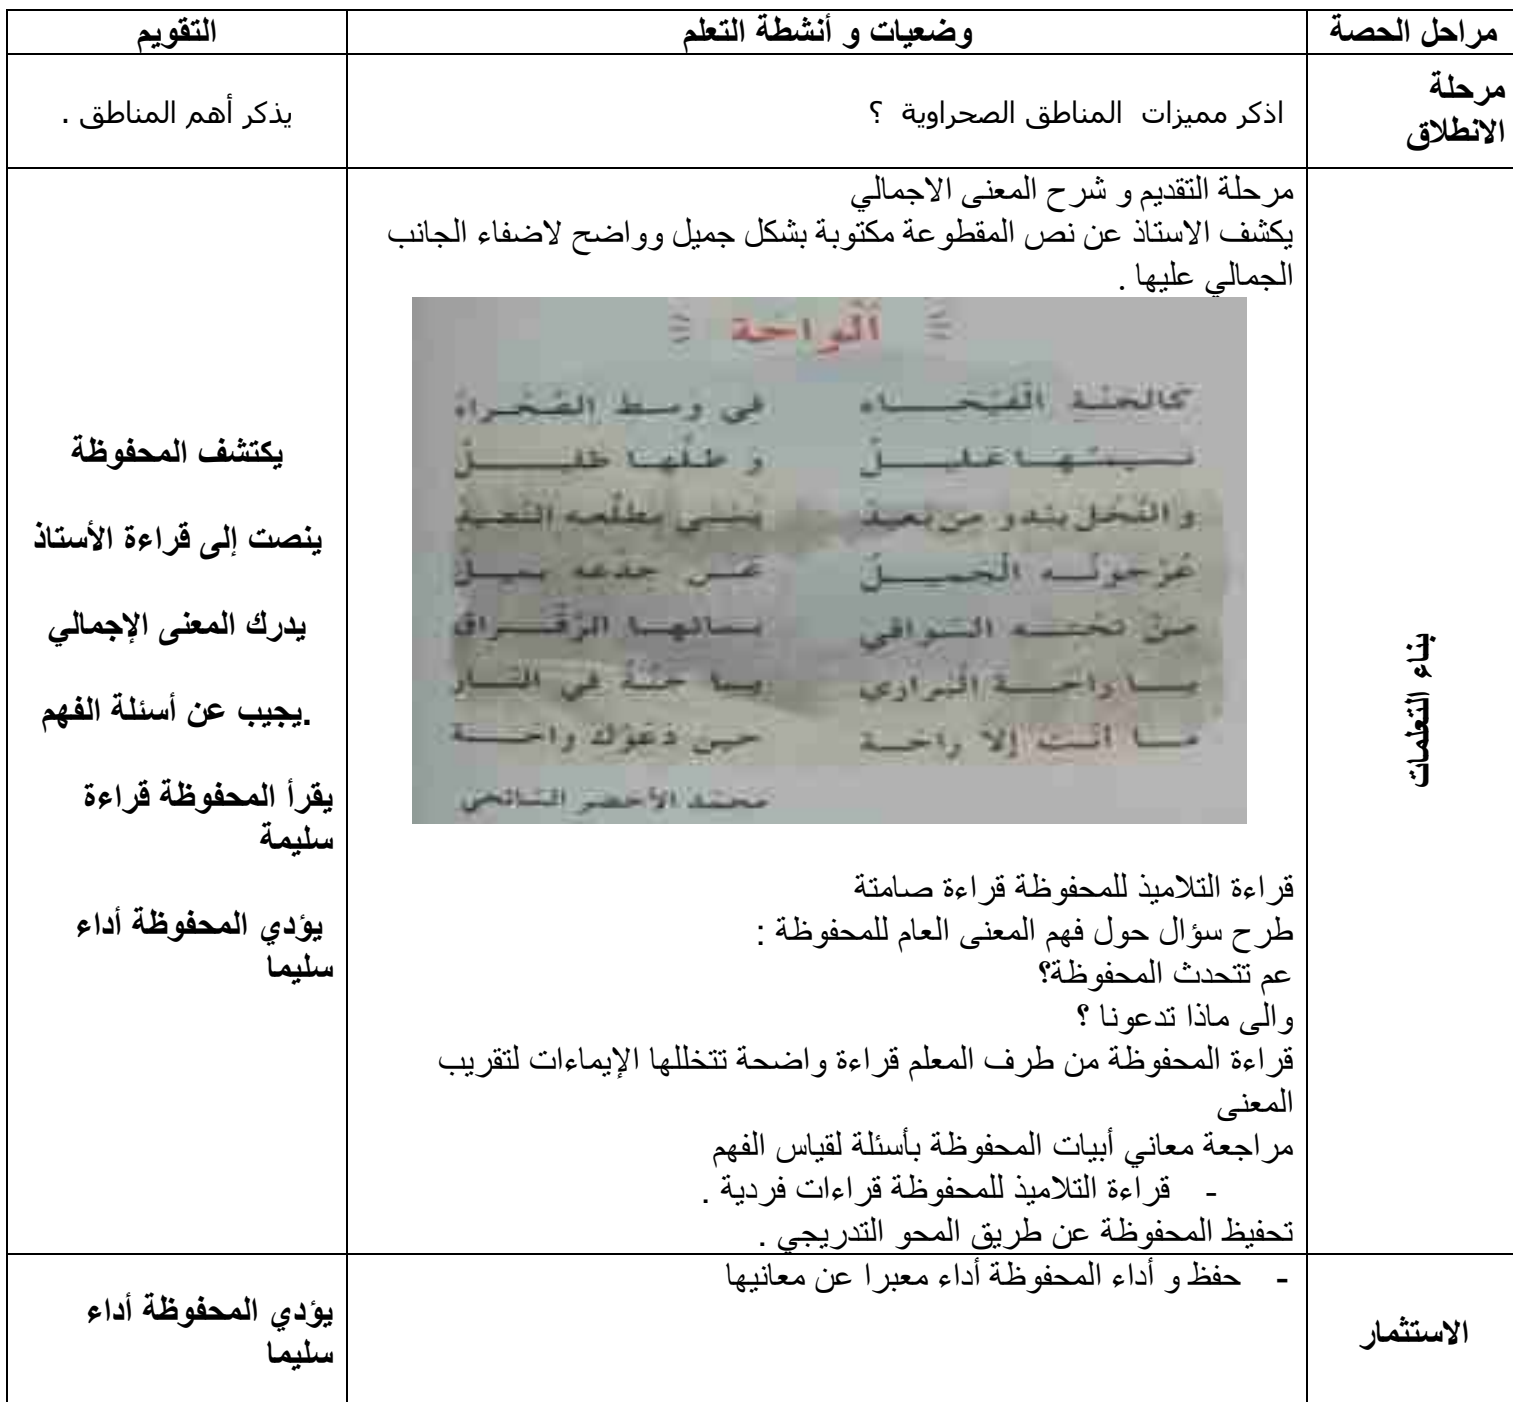 مراحل الحصة
وضعيات و أنشطة التعلم
التقويم
مرحلة
الانطلاق
اذكر مميزات المناطق الصحراوية ؟
يذكر أهم المناطق .
بناء التعلمات
مرحلة التقديم و شرح المعنى الاجمالي
يكشف الاستاذ عن نص المقطوعة مكتوبة بشكل جميل وواضح لاضفاء الجانب
الجمالي عليها .
الواحة
كالجنة الفيحاء في وسط الصحراء
نسيمها عليل و ظلها ظليل
والنخل يبدو من بعيد بطلعه النضيد
عرجونه الجميل عن جذعه يميل
من تحته السواقي بمائها الرقراق
يا واحة البراري يا جنة في النار
ما أنت إلا راحة حين دعوك واحة
محمد الأخضر السائحي
قراءة التلاميذ للمحفوظة قراءة صامتة
طرح سؤال حول فهم المعنى العام للمحفوظة :
عم تتحدث المحفوظة؟
والى ماذا تدعونا ؟
قراءة المحفوظة من طرف المعلم قراءة واضحة تتخللها الإيماءات لتقريب
المعنى
مراجعة معاني أبيات المحفوظة بأسئلة لقياس الفهم
- قراءة التلاميذ للمحفوظة قراءات فردية .
تحفيظ المحفوظة عن طريق المحو التدريجي .
يكتشف المحفوظة
ينصت إلى قراءة الأستاذ
يدرك المعنى الإجمالي
.يجيب عن أسئلة الفهم
يقرأ المحفوظة قراءة
سليمة
يؤدي المحفوظة أداء
سليما
الاستثمار
- حفظ و أداء المحفوظة أداء معبرا عن معانيها
يؤدي المحفوظة أداء
سليما